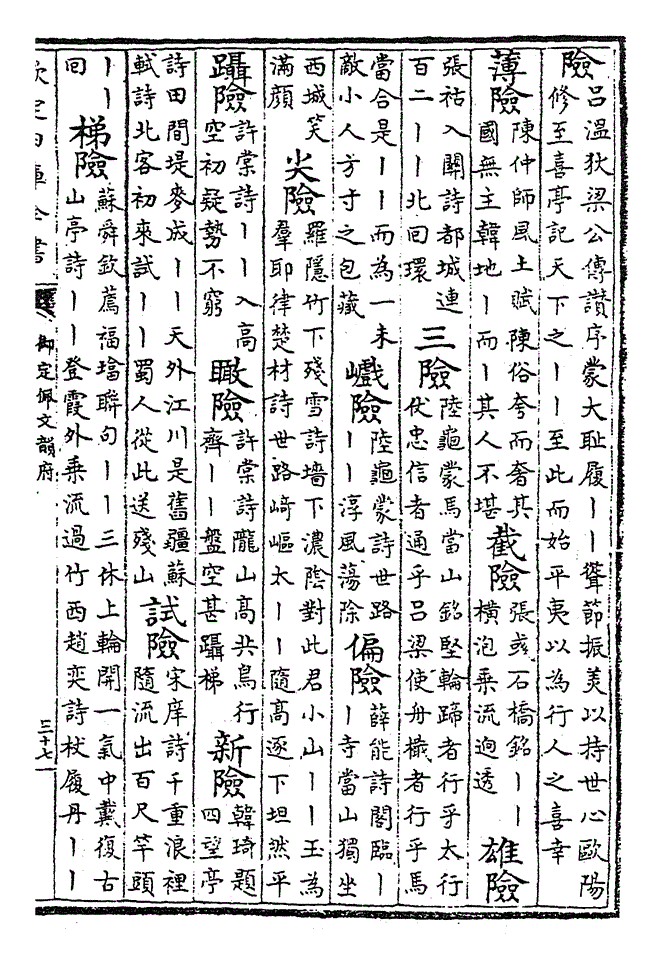 險呂溫狄梁公傳讚序蒙大耻履丨丨聳節振美以持世心歐陽
修至喜亭記天下之丨丨至此而始平夷以為行人之喜幸
薄險陳仲師風土賦陳俗夸而奢其
國無主韓地丨而丨其人不堪
截險張彧石橋銘丨丨
橫泡乘流迥透
雄險
張祜入關詩都城連
百二丨丨北回環
三險陸龜蒙馬當山銘堅輪蹄者行乎太行
仗忠信者通乎呂梁使舟檝者行乎馬
當合是丨丨而為一未
敵小人方寸之包藏
巇險陸龜蒙詩世路
丨丨淳風蕩除
偏險薛能詩閣臨丨
丨寺當山獨坐
西城笑
滿顔
尖險羅隱竹下殘雪詩墻下濃陰對此君小山丨丨玉為
羣耶律楚材詩世路﨑嶇太丨丨隨高逐下坦然平
躡險許棠詩丨丨入高
空初疑勢不窮
瞰險許棠詩隴山高共鳥行
齊丨丨盤空甚躡梯
新險韓琦題
四望亭
詩田間堤麥成丨丨天外江川是舊疆蘇
軾詩北客初來試丨丨蜀人從此送殘山
試險宋庠詩千重浪裡
隨流出百尺竿頭
丨丨
回
梯險蘇舜欽薦福塔聯句丨丨三休上輪開一氣中戴復古
山亭詩丨丨登霞外乘流過竹西趙奕詩杖履丹丨丨
欽定四庫全書
御定佩文韻府
三十七